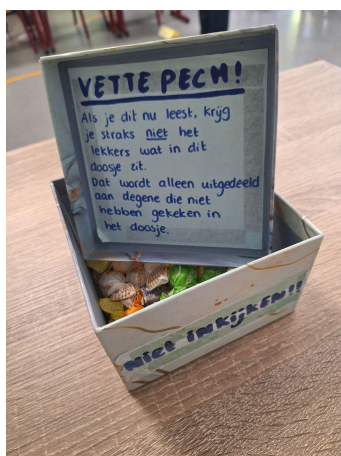 VETTE PECH!
Als je dit nu leest, krijg
je straks niet het
lekkers wat in dit
doosje zit.
Dat wordt alleen uitgedeeld
aan degene die niet
hebben gekeken in
het doosje.
Niet inkijken!!